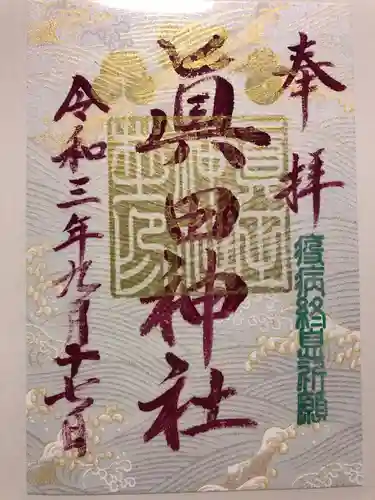 奉拝
疫病終息祈願
眞田神社
令和三年九月十七日